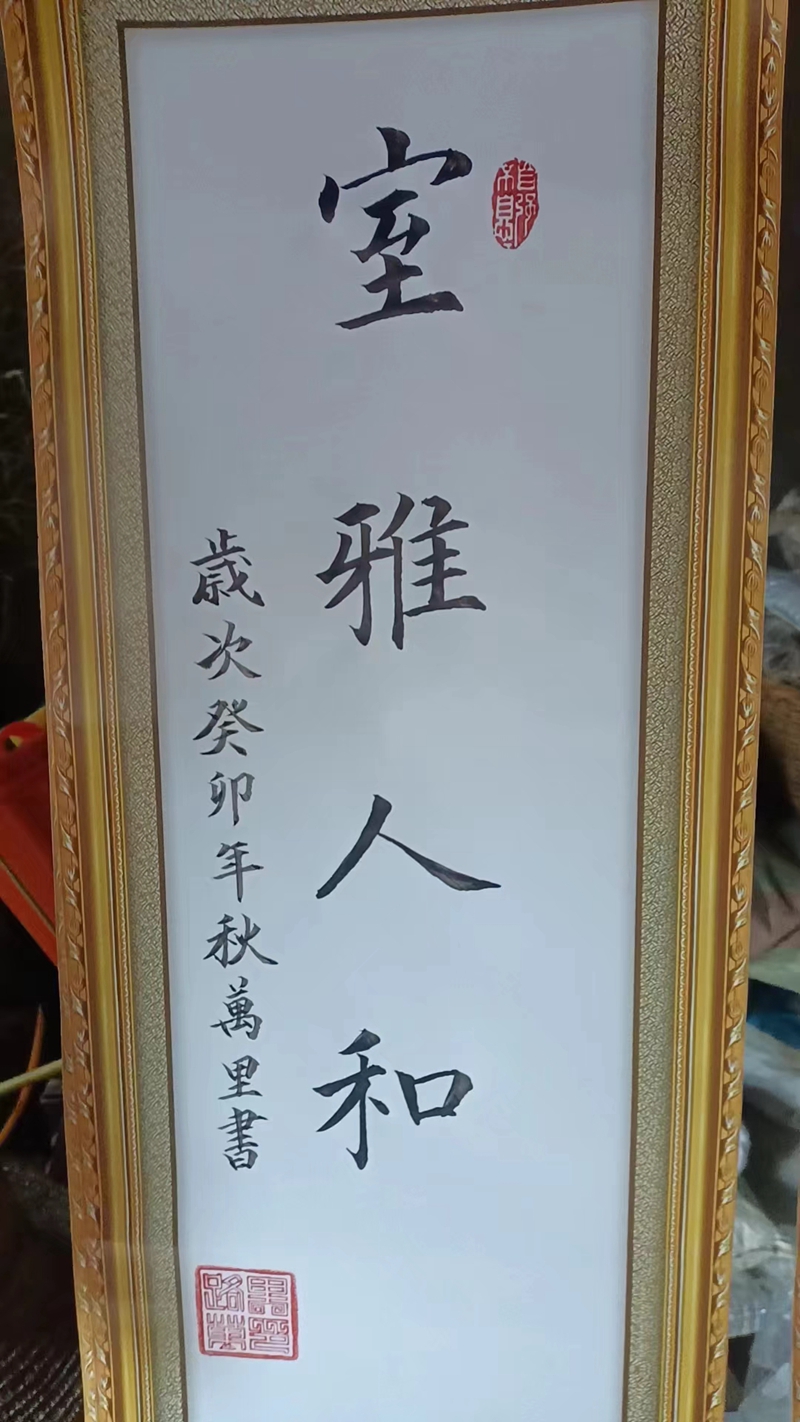 室雅人和
歳次癸卯年秋萬里書